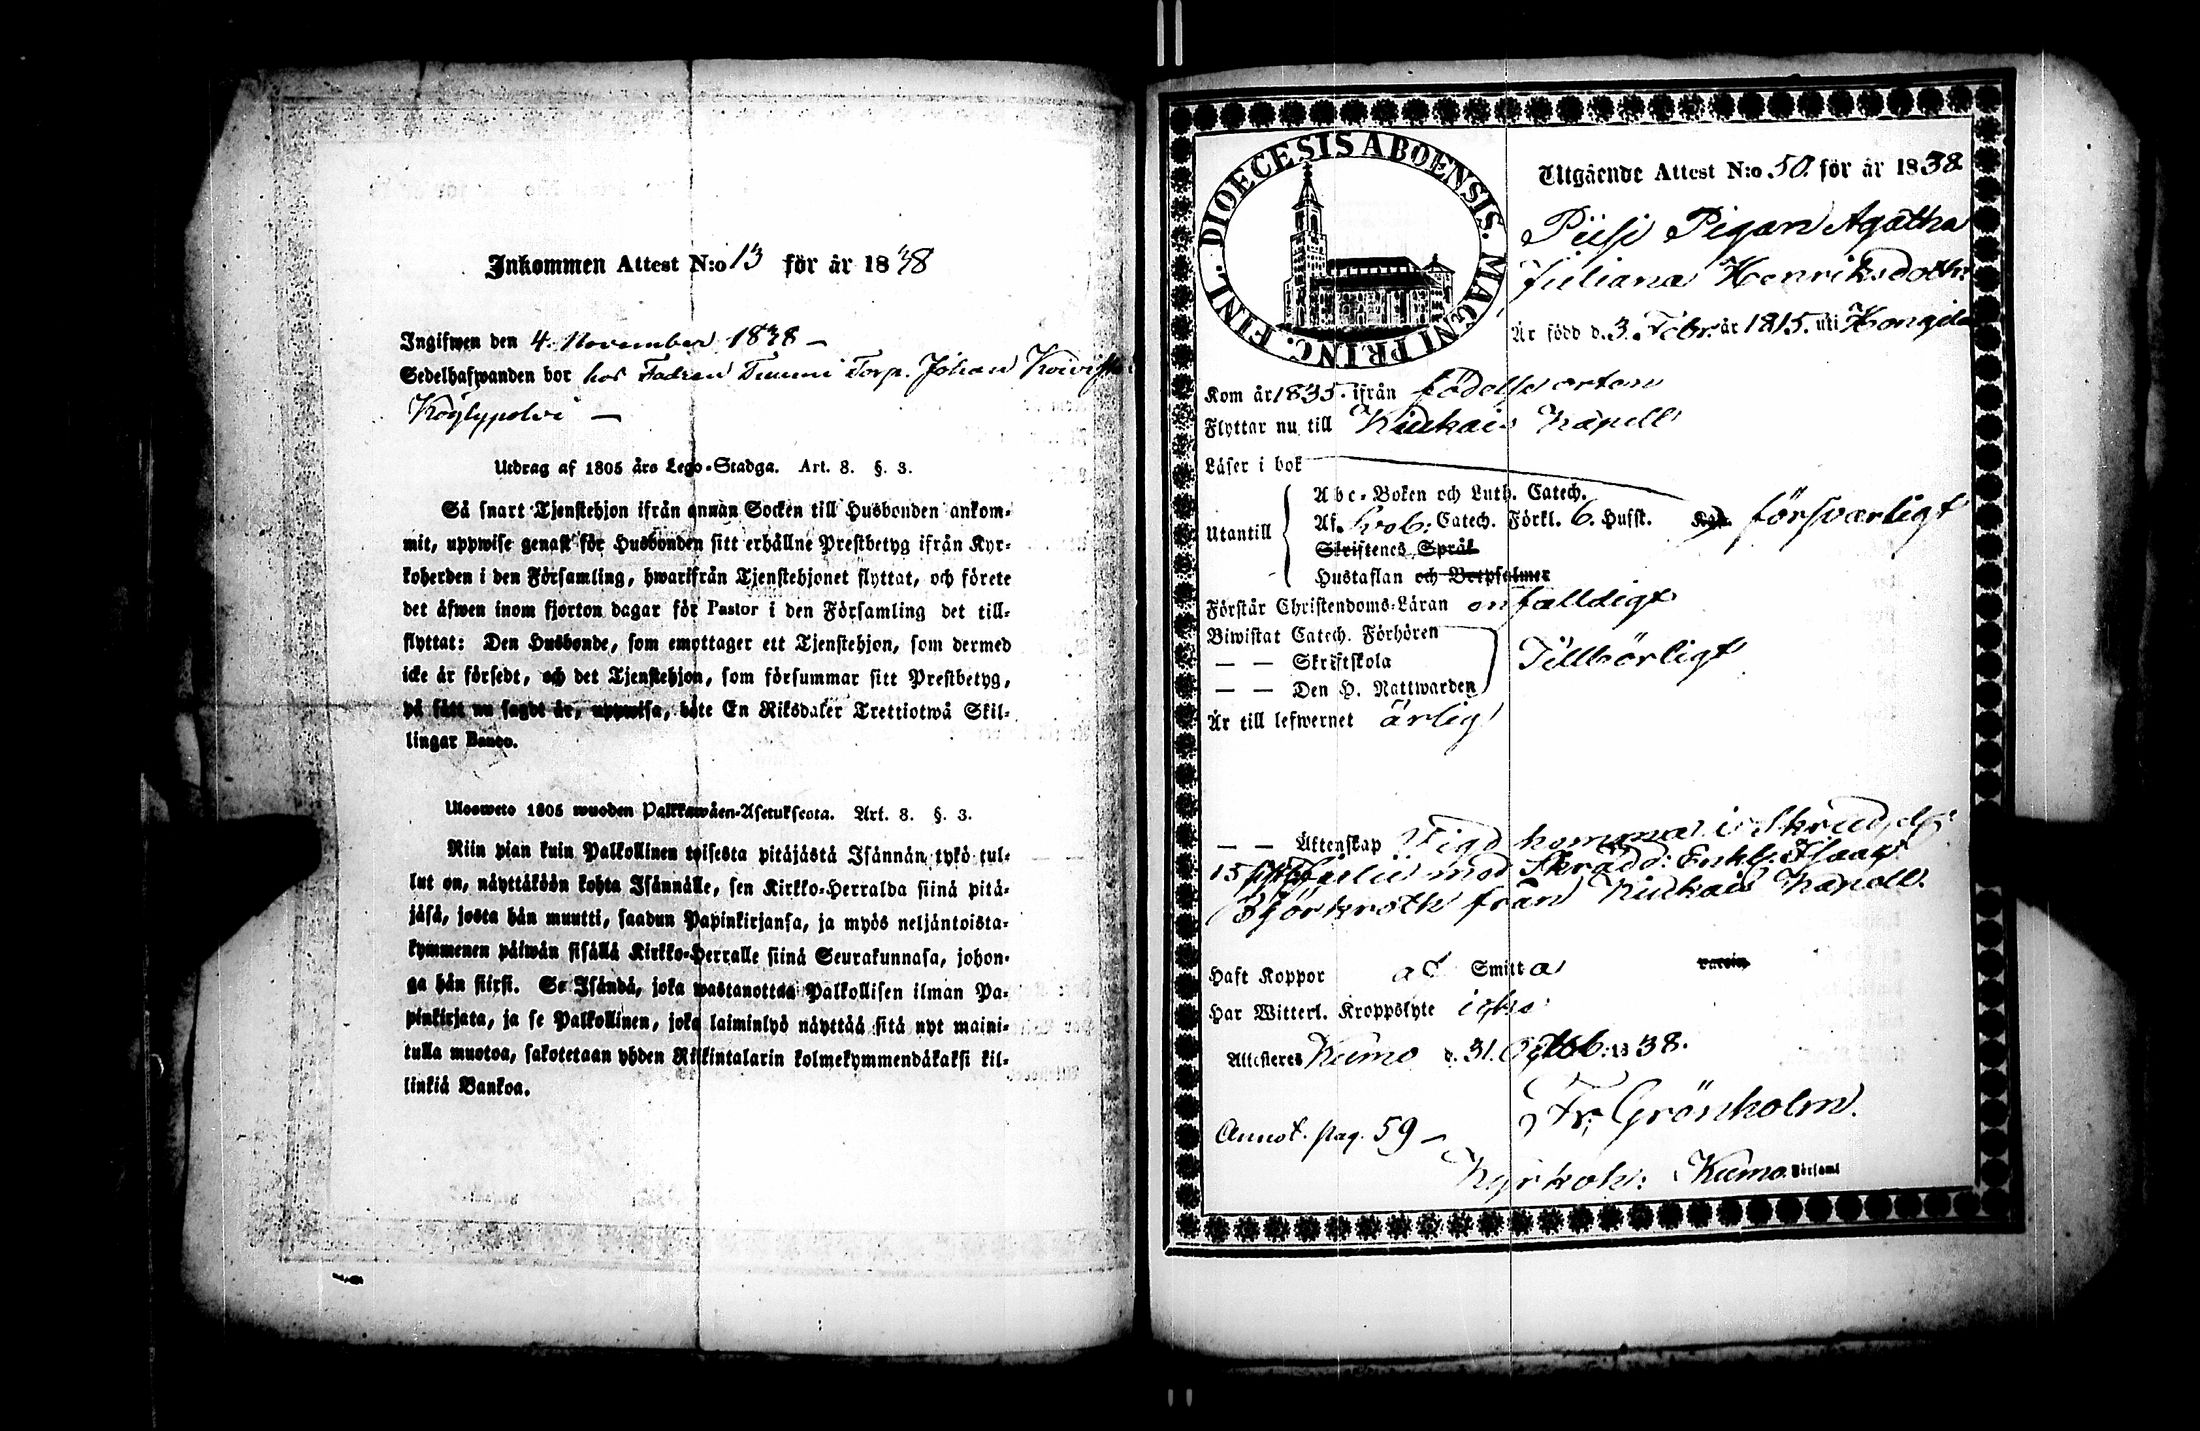 Inkommen Attest N:o 13 för år 1838
Ingifwen den 4. November 1838 –
Sedelhafwanden bor hos Fadren Torp. Johan
Köylypolvi –
Utdrag af 1805 års Lego-Stadga. Art. 8. §. 3.
Så snart Tjenstehjon ifrån annan Socken till Husbonden ankom-
mit, uppwise genast för Husbonden sitt erhållne Prestbetyg ifrån Kyr-
koherden i den Församling, hwarifrån Tjenstehjonet flyttat, och förete
det äfwen inom fjorton dagar för Pastor i den Församling det till-
flyttat: Den Husbonde, som emottager ett Tjenstehjon, som dermed
icke är försedt, och det Tjenstehjon, som försummar sitt Prestbetyg,
på sätt nu sagdt är, uppwisa, böte En Riksdaler Trettiotwå Skil-
lingar Banco.
Ulosweto 1805 wuoden Palkkawäen-Asetuksesta. Art. 8. §. 3.
Niin pian kuin Palkollinen toisesta pitäjästä Isännän tykö tul-
lut on, näyttäköön kohta Isännälle, sen Kirkko-Herralda siinä pitä-
jäsä, josta hän muutti, saadun Papinkirjansa, ja myös neljäntoista-
kymmenen päiwän sisällä Kirkko-Herralle siinä Seurakunnasa, johon-
ga hän siirsi. Se Isändä, joka wastanottaa Palkollisen ilman Pa-
pinkirjata, ja se Palkollinen, joka laiminlyö näyttää sitä nyt maini-
tulla muotoa, sakotetaan yhden Riikintalarin kolmekymmendäkaksi kil-
linkiä Bankoa.
DIOECESIS ABOENSIS. MAGNI PRINC. FINL.
Utgående Attest N:o 50. för år 1838
Pigan Agatha
Juliana Henriksdotter
Är född d. 3. Febr. år 1815. uti
Kom år 1835. ifrån födelse orten
Flyttar nu till Kiukais Kapell
Läser i bok
Abc-Boken och Luth. Catech.
Utantill Af Catech. Förkl. 6. Hufst. försvarligt
Skriftenes Språk
Hustaflan och Botpsalmer
Förstår Christendoms-Läran enfalldigt
Biwistat Catech. Förhören
— — Skriftskola Tillbörligt
— — Den H. Nattwarden
Är till lefwernet ärlig
— — Äktenskap
15 med Skrädd: Enkl. Isaac
Björkroth från Kiukais Kapell.
Haft Koppor af Smitta vaccin
Har Witterl. Kroppslyte icke
Attesteres Kumo d. 31. Octob: 1838.
Fr. Grönholm.
Annot. pag. 59 –
Kyrkoh: Kumo Församl